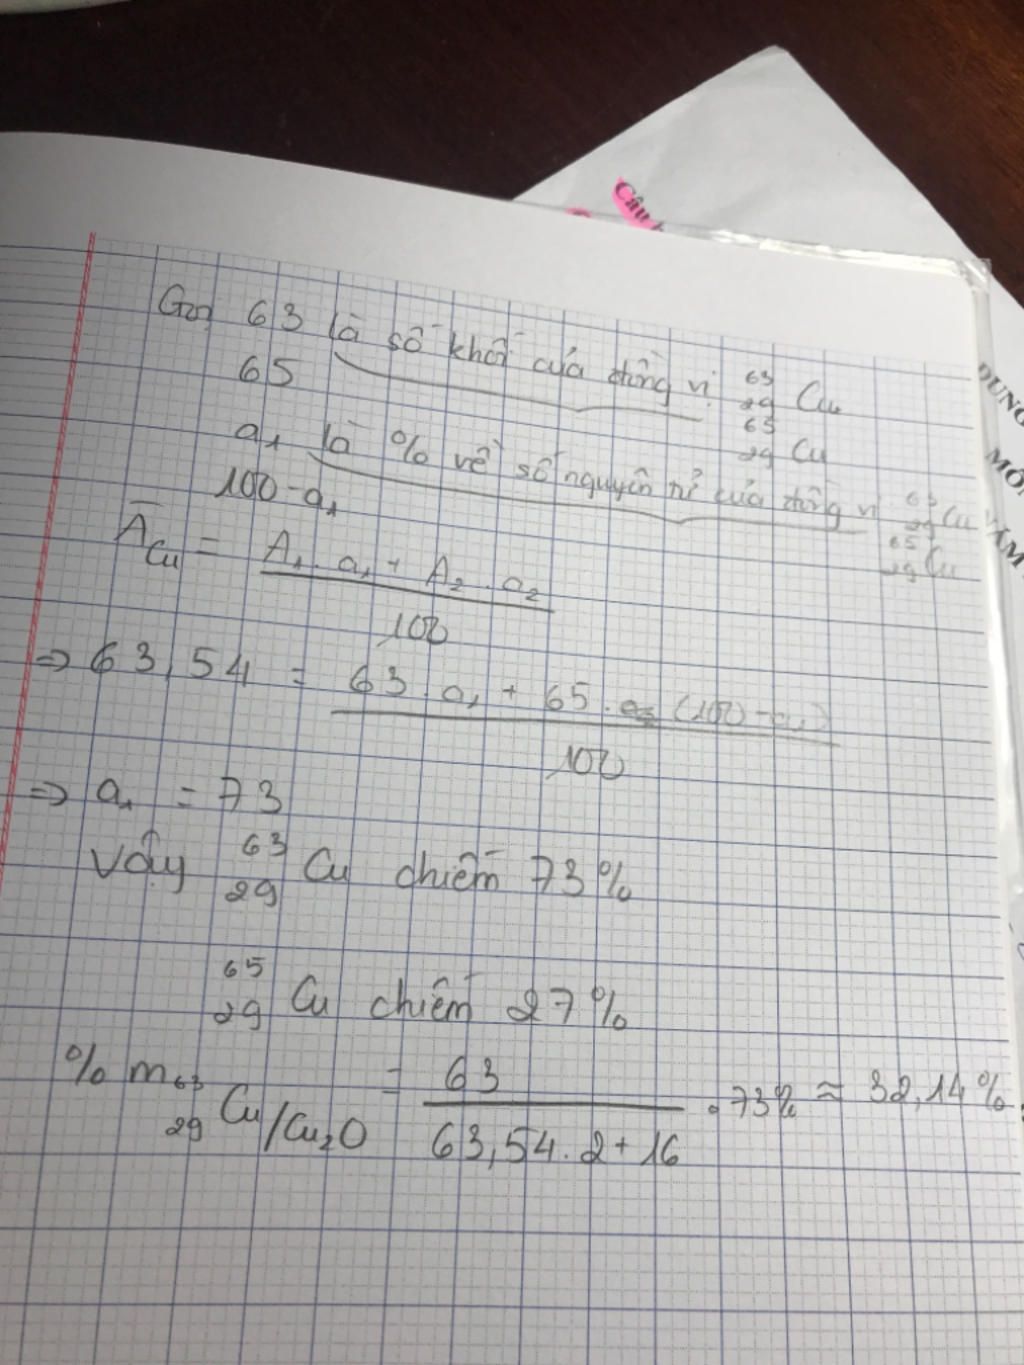 Câu
DUNG
MÔ
Gọi 63 là số khối của đồng vị ⁶³₂₉Cu
65 ⁶⁵₂₉Cu
a₁ là % về số nguyên tử của đồng vị ⁶³₂₉Cu
100-a₁ ⁶⁵₂₉Cu
A̅Cu = A₁.a₁ + A₂.a₂ / 100
=> 63,54 = 63.a₁ + 65.(100-a₁) / 100
=> a₁ = 73
Vậy ⁶³₂₉Cu chiếm 73%
⁶⁵₂₉Cu chiếm 27%
% m ⁶³₂₉Cu/Cu₂O = 63 / 63,54.2+16 . 73% ≈ 32,14%